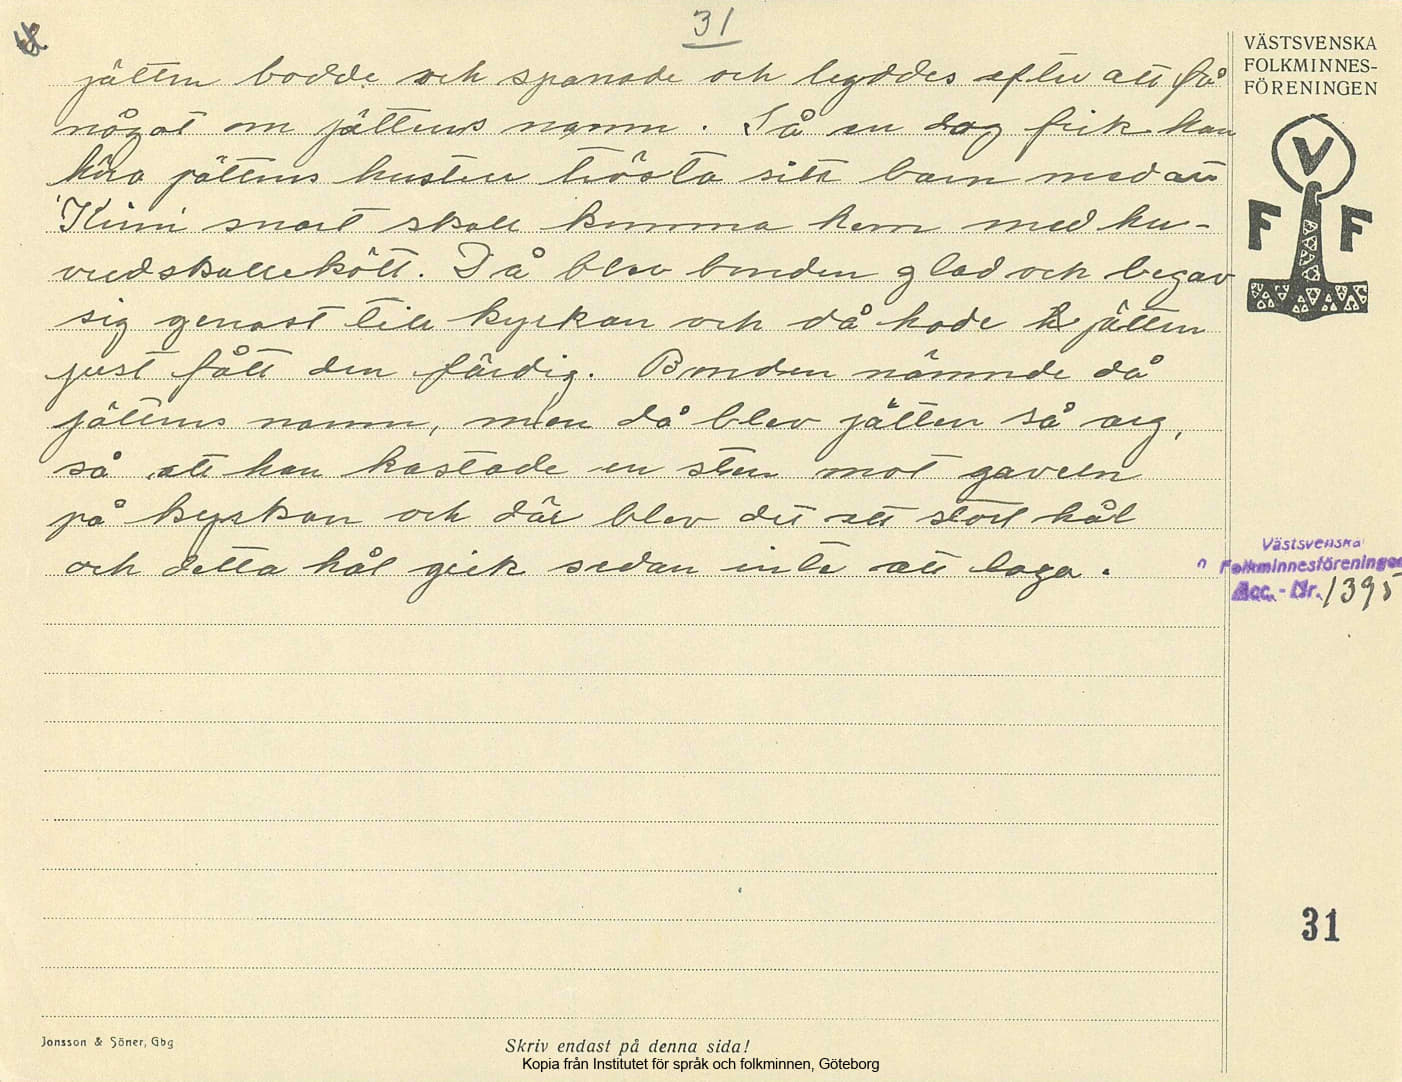 31
jätten bodde och spanade och lyddes efter att få
något om jättens namn. Så en dag fick han
höra jättens hustru trösta sitt barn med att
'Kinn' snart skall komma hem med hu-
vudskallekött. Då blev bonden glad och begav
sig genast till kyrkan och då hade jätten
just fått den färdig. Bonden nämnde då
jättens namn, men då blev jätten så arg,
så att han kastade en sten mot gaveln
på kyrkan och där blev det ett stort hål
och detta hål gick sedan inte att laga.
VÄSTSVENSKA
FOLKMINNES-
FÖRENINGEN
V
F F
Västsvenska
Folkminnesföreningen
Acc.-Nr. 1395
31
Jonsson & Söner, Gbg
Skriv endast på denna sida!
Kopia från Institutet för språk och folkminnen, Göteborg